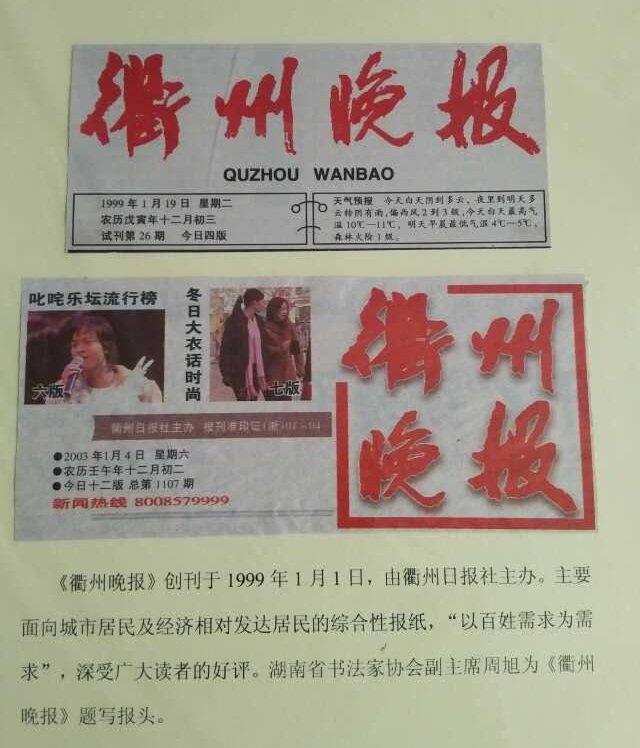 衢州晚报
QUZHOU WANBAO
1999年1月19日 星期二
农历戊寅年十二月初三
试刊第26期 今日四版
天气预报 今天白天阴到多云，夜里到明天多
云转阴有雨，偏西风2到3级，今天白天最高气
温10℃—11℃，明天早晨最低气温4℃—5℃，
森林火险1级。
叱咤乐坛流行榜
六版
冬日大衣话时尚
七版
衢州日报社主办 报刊准印证(浙)01-04
●2003年1月4日 星期六
●农历壬午年十二月初二
●今日十二版 总第1107期
新闻热线 8008579999
衢州
晚报
《衢州晚报》创刊于1999年1月1日，由衢州日报社主办。主要
面向城市居民及经济相对发达居民的综合性报纸，“以百姓需求为需
求”，深受广大读者的好评。湖南省书法家协会副主席周旭为《衢州
晚报》题写报头。